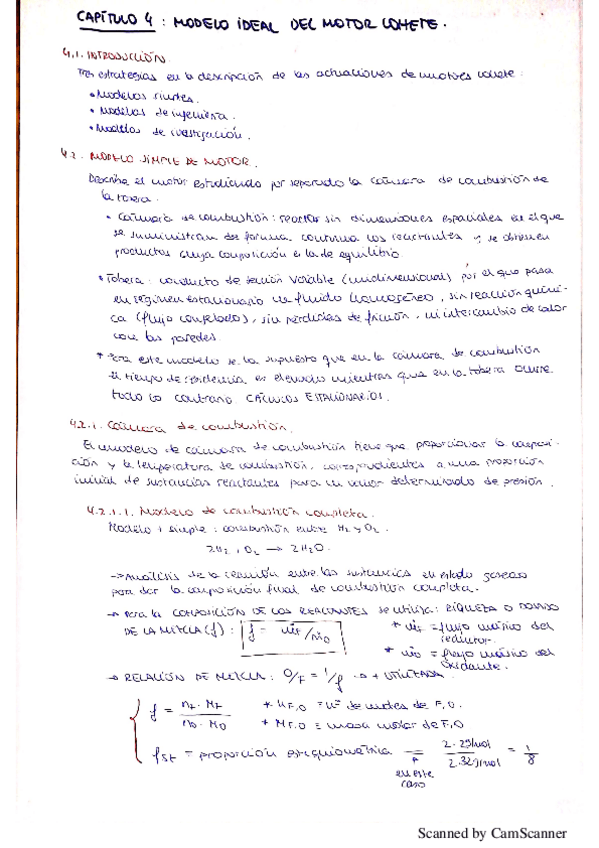 CAPÍTULO 4 : MODELO IDEAL DEL MOTOR COHETE.
4.1. INTRODUCCIÓN
Tres estrategias en la descripción de las actuaciones de motores cohete:
• Modelos simples.
• Modelos de ingeniería.
• Modelos de investigación.
4.2. MODELO SIMPLE DE MOTOR.
Describe el motor estudiando por separado la cámara de combustión de
la tobera.
• Cámara de combustión: reactor sin dimensiones espaciales en el que
se suministran de forma continua los reactantes y se obtienen
productos cuya composición es la de equilibrio.
• Tobera: conducto de sección variable (unidimensional) por el que pasa
en régimen estacionario un fluido homogéneo, sin reacción quími-
ca (flujo congelado), sin pérdidas de fricción, ni intercambio de calor
con las paredes.
* Para este modelo se ha supuesto que en la cámara de combustión
el tiempo de residencia es elevado mientras que en la tobera ocurre
todo lo contrario CÁLCULOS ESTACIONARIOS.
4.2.1. Cámara de combustión.
El modelo de cámara de combustión tiene que proporcionar la composi-
ción y la temperatura de combustión, correspondientes a una proporción
inicial de sustancias reactantes para un valor determinado de presión.
4.2.1.1. Modelo de combustión completa.
Modelo + simple: combustión entre H₂ y O₂.
2H₂ + O₂ → 2H₂O.
→ Análisis de la reacción entre las sustancias en estado gaseoso
para dar la composición final de combustión completa.
→ Para la COMPOSICIÓN DE LOS REACTANTES se utiliza: RIQUEZA O DOSADO
DE LA MEZCLA (f): f = ṁf/ṁo * ṁf = flujo másico del
reductor.
* ṁo = flujo másico del
oxidante.
→ RELACIÓN DE MEZCLA: O/F = 1/f → + UTILIZADA.
f = nF · MF / nO · MO * nF,O = nº de moles de F, O.
* MF,O = masa molar de F, O
fst = proporción estequiométrica = 2 · 2g/mol / 2.32g/mol = 1/8
en este
caso
Scanned by CamScanner